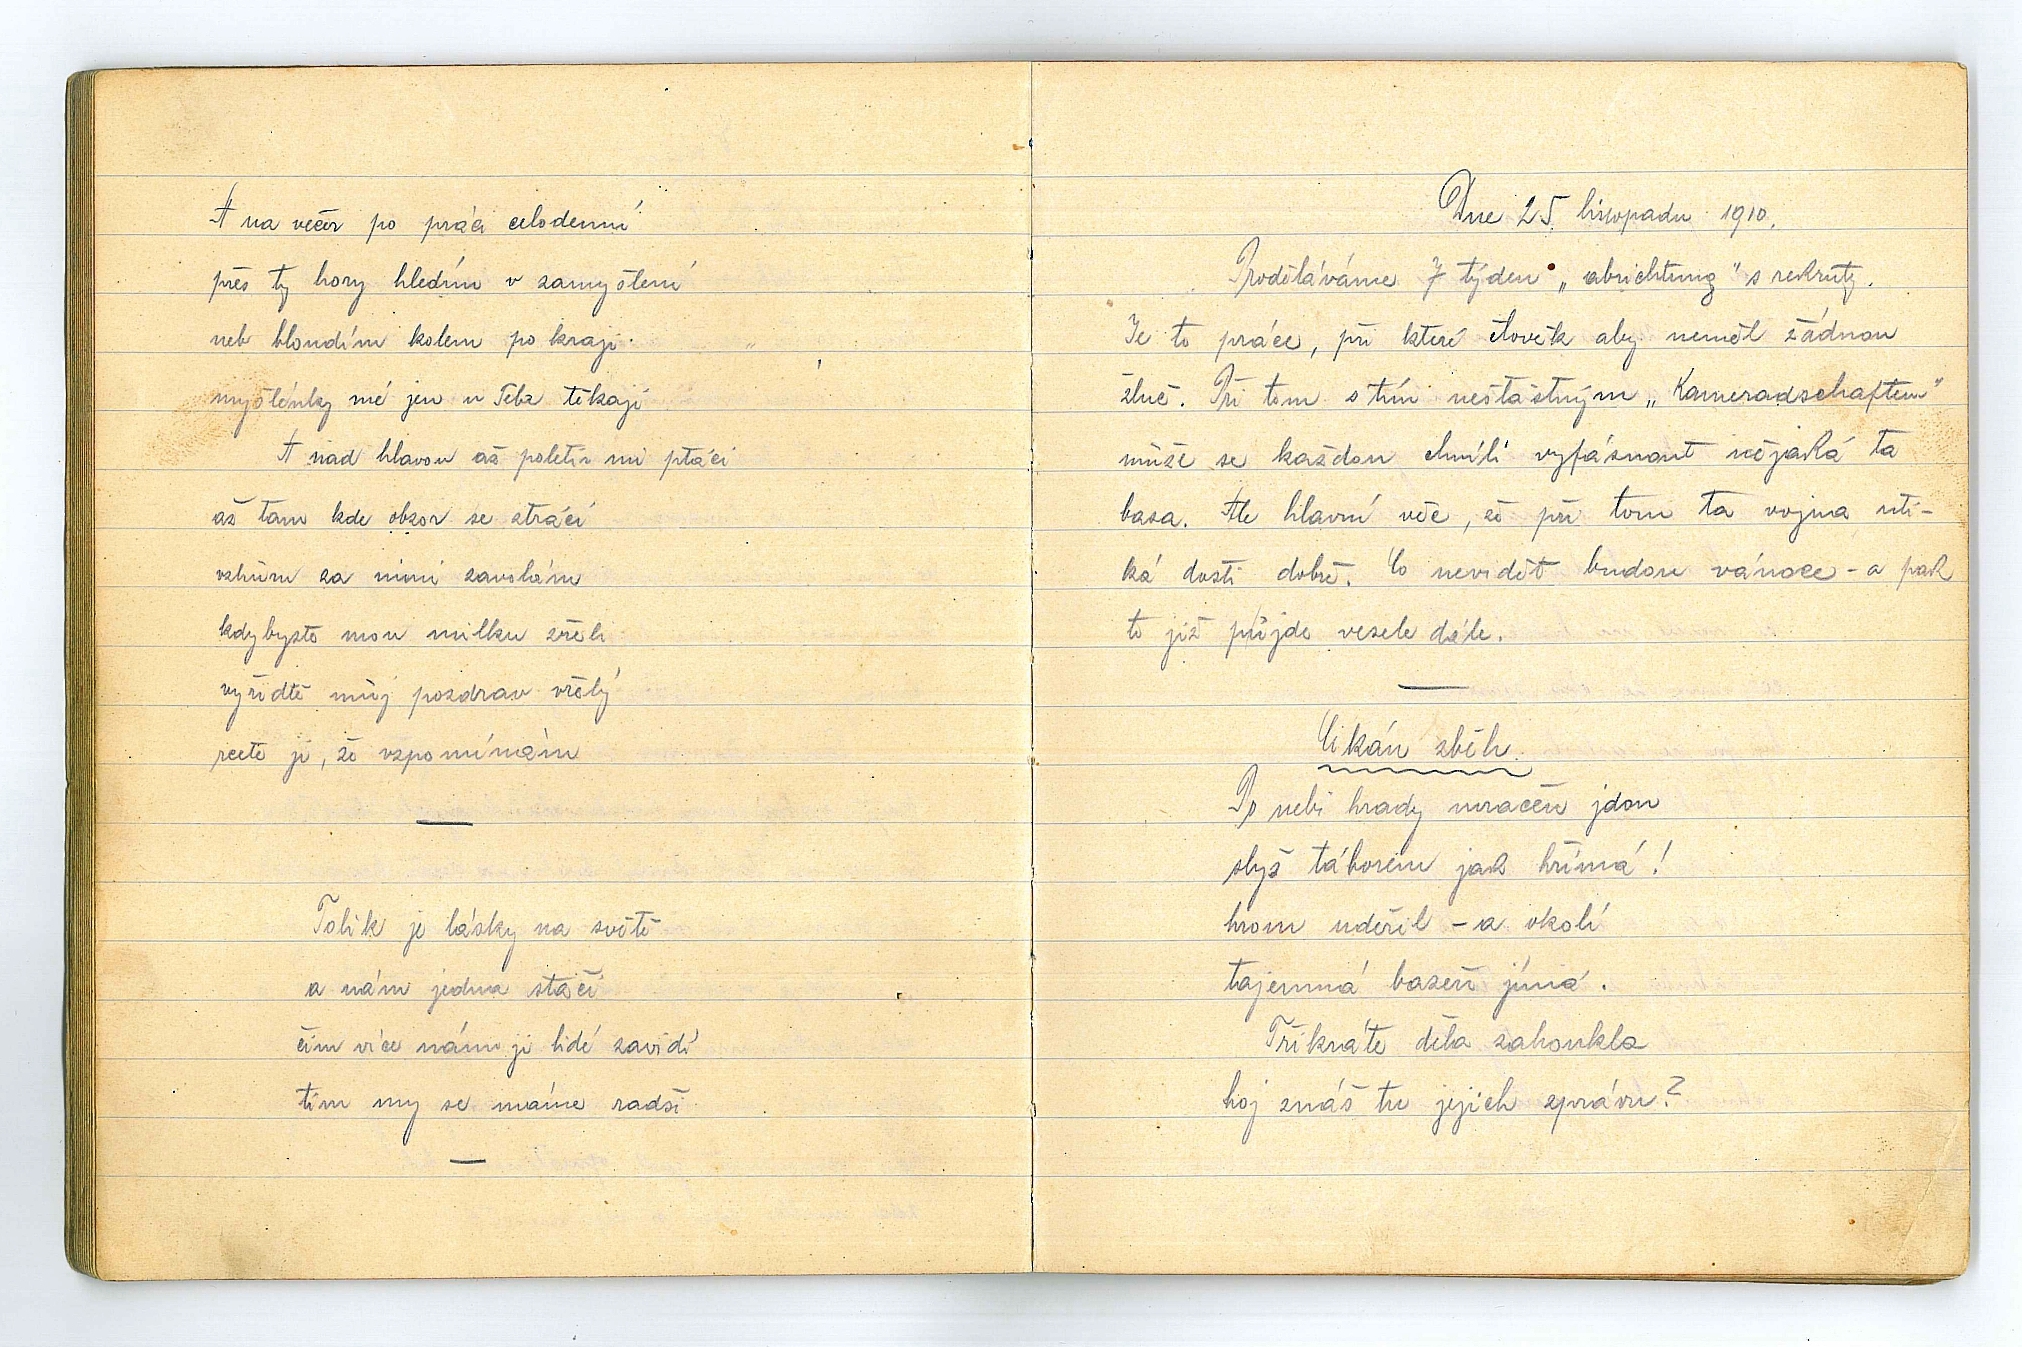 A na večer po práci celodenní
přes ty hory hledím v zamyšlení
neb bloudím kolem po kraji.
myšlénky mé jen u Tebe těkají
A nad hlavou až poletí mi ptáci
až tam kde obzor se ztrácí
vzhůru za nimi zavolám
kdybyste mou milku zřeli
vyřiďtě můj pozdrav vřelý
rcete jí, že vzpomínám
Tolik je lásky na světě
a nám jedna stačí
čím více nám ji lidé závidí
tím my se máme radši
Dne 25. listopadu 1910.
Proděláváme 7 týden „abrichtung" s rekruty.
Je to práce, při které človék aby neměl žádnou
žluč. Při tom s tím nešťastným „Kameradschaftem"
může se každou chvíli vyfásnout nějaká ta
basa. Ale hlavní věc, že při tom ta vojna utí-
ká dosti dobře. Co nevidět budou vánoce - a pak
to již půjde vesele dále.
Cikán zběh.
Po nebi hrady mračen jdou
slyš táborem jak hřímá!
hrom udeřil - a okolí
tajemná bázeň jímá.
Třikráte děla zahoukla
hoj znáš tu jejich zprávu?